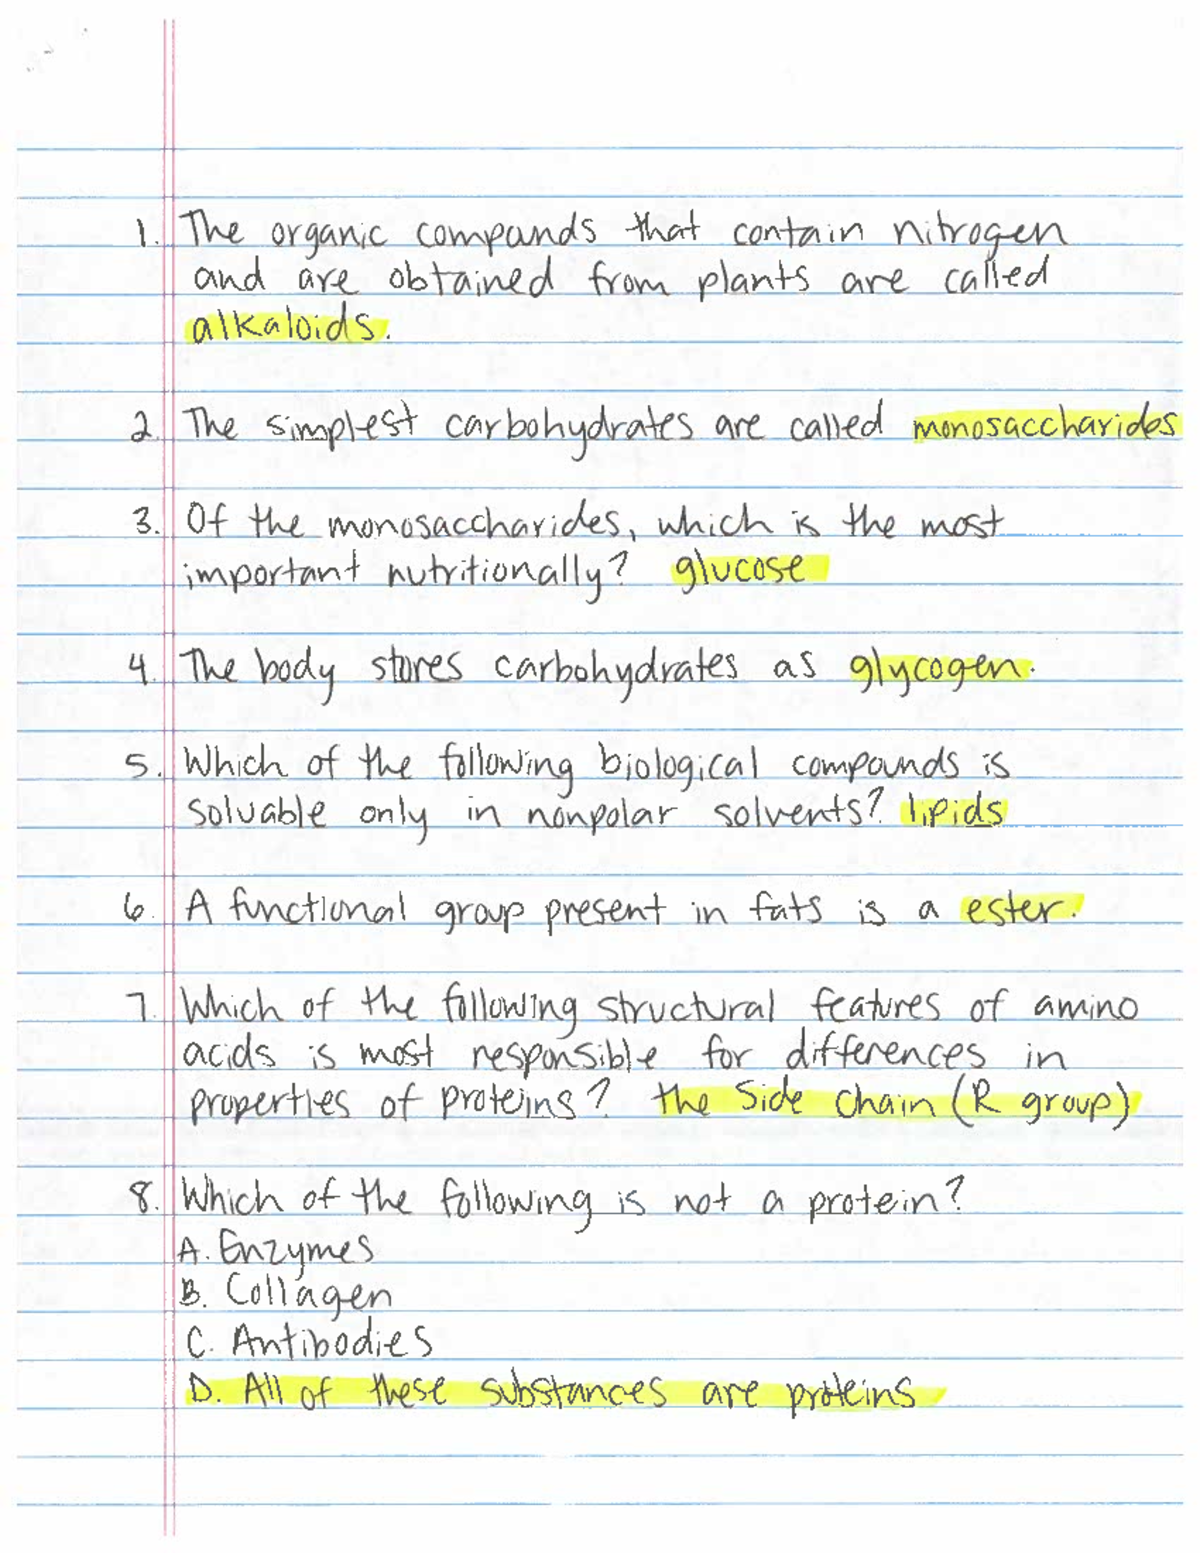 1. The organic compounds that contain nitrogen
and are obtained from plants are called
alkaloids.
2. The simplest carbohydrates are called monosaccharides
3. Of the monosaccharides, which is the most
important nutritionally? glucose
4. The body stores carbohydrates as glycogen.
5. Which of the following biological compounds is
soluable only in nonpolar solvents? lipids
6. A functional group present in fats is a ester.
7. Which of the following structural features of amino
acids is most responsible for differences in
properties of proteins? the Side Chain (R group)
8. Which of the following is not a protein?
A. Enzymes
B. Collagen
C. Antibodies
D. All of these substances are proteins